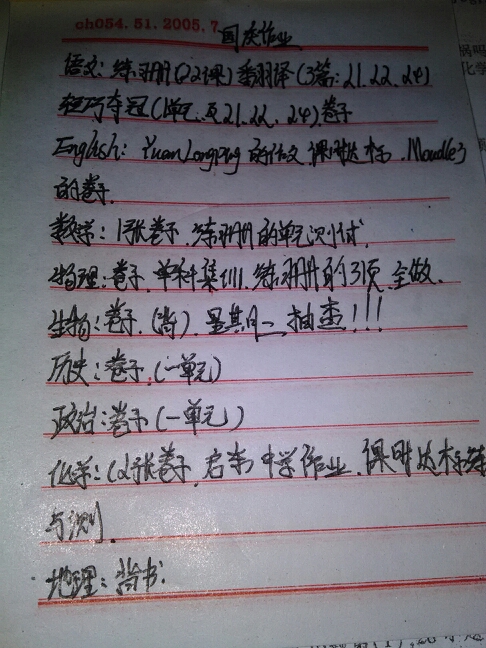 ch054.51.2005.7
国庆作业
语文:练习册(22课)翻译(3篇:21.22.24)
轻巧夺冠(单元及21.22.24)卷子
English: YuanLongping 的作文 课时达标. Moudle3
的卷子.
数学:1张卷子.练习册的单元测试.
物理:卷子.单科集训.练习册的3页 全做.
生物:卷子.(背).星期二抽查!!!
历史:卷子.(一单元)
政治:卷子(一单元)
化学:(2张卷子.启东中学作业.课时达标练
与测.
地理:背书.